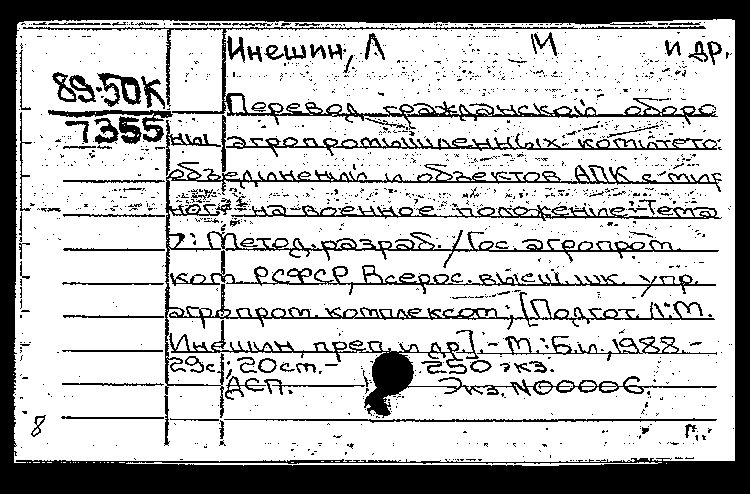 Инешин, А М и др.
89-50К
7355
Перевод гражданской оборо
ны агропромышленных комитето
объединений и объектов АПК с мир
ного на военное положение: Тема
7: Метод. разраб. / Гос. агропром.
ком. РСФСР, Всерос. высш. шк. упр.
агропром. комплексом; [Подгот. А.М.
Инешин, преп. и др.]. - М.: Б.и., 1988. -
29с.; 20см. - 250 экз.
ДСП. Экз. N00006.
8